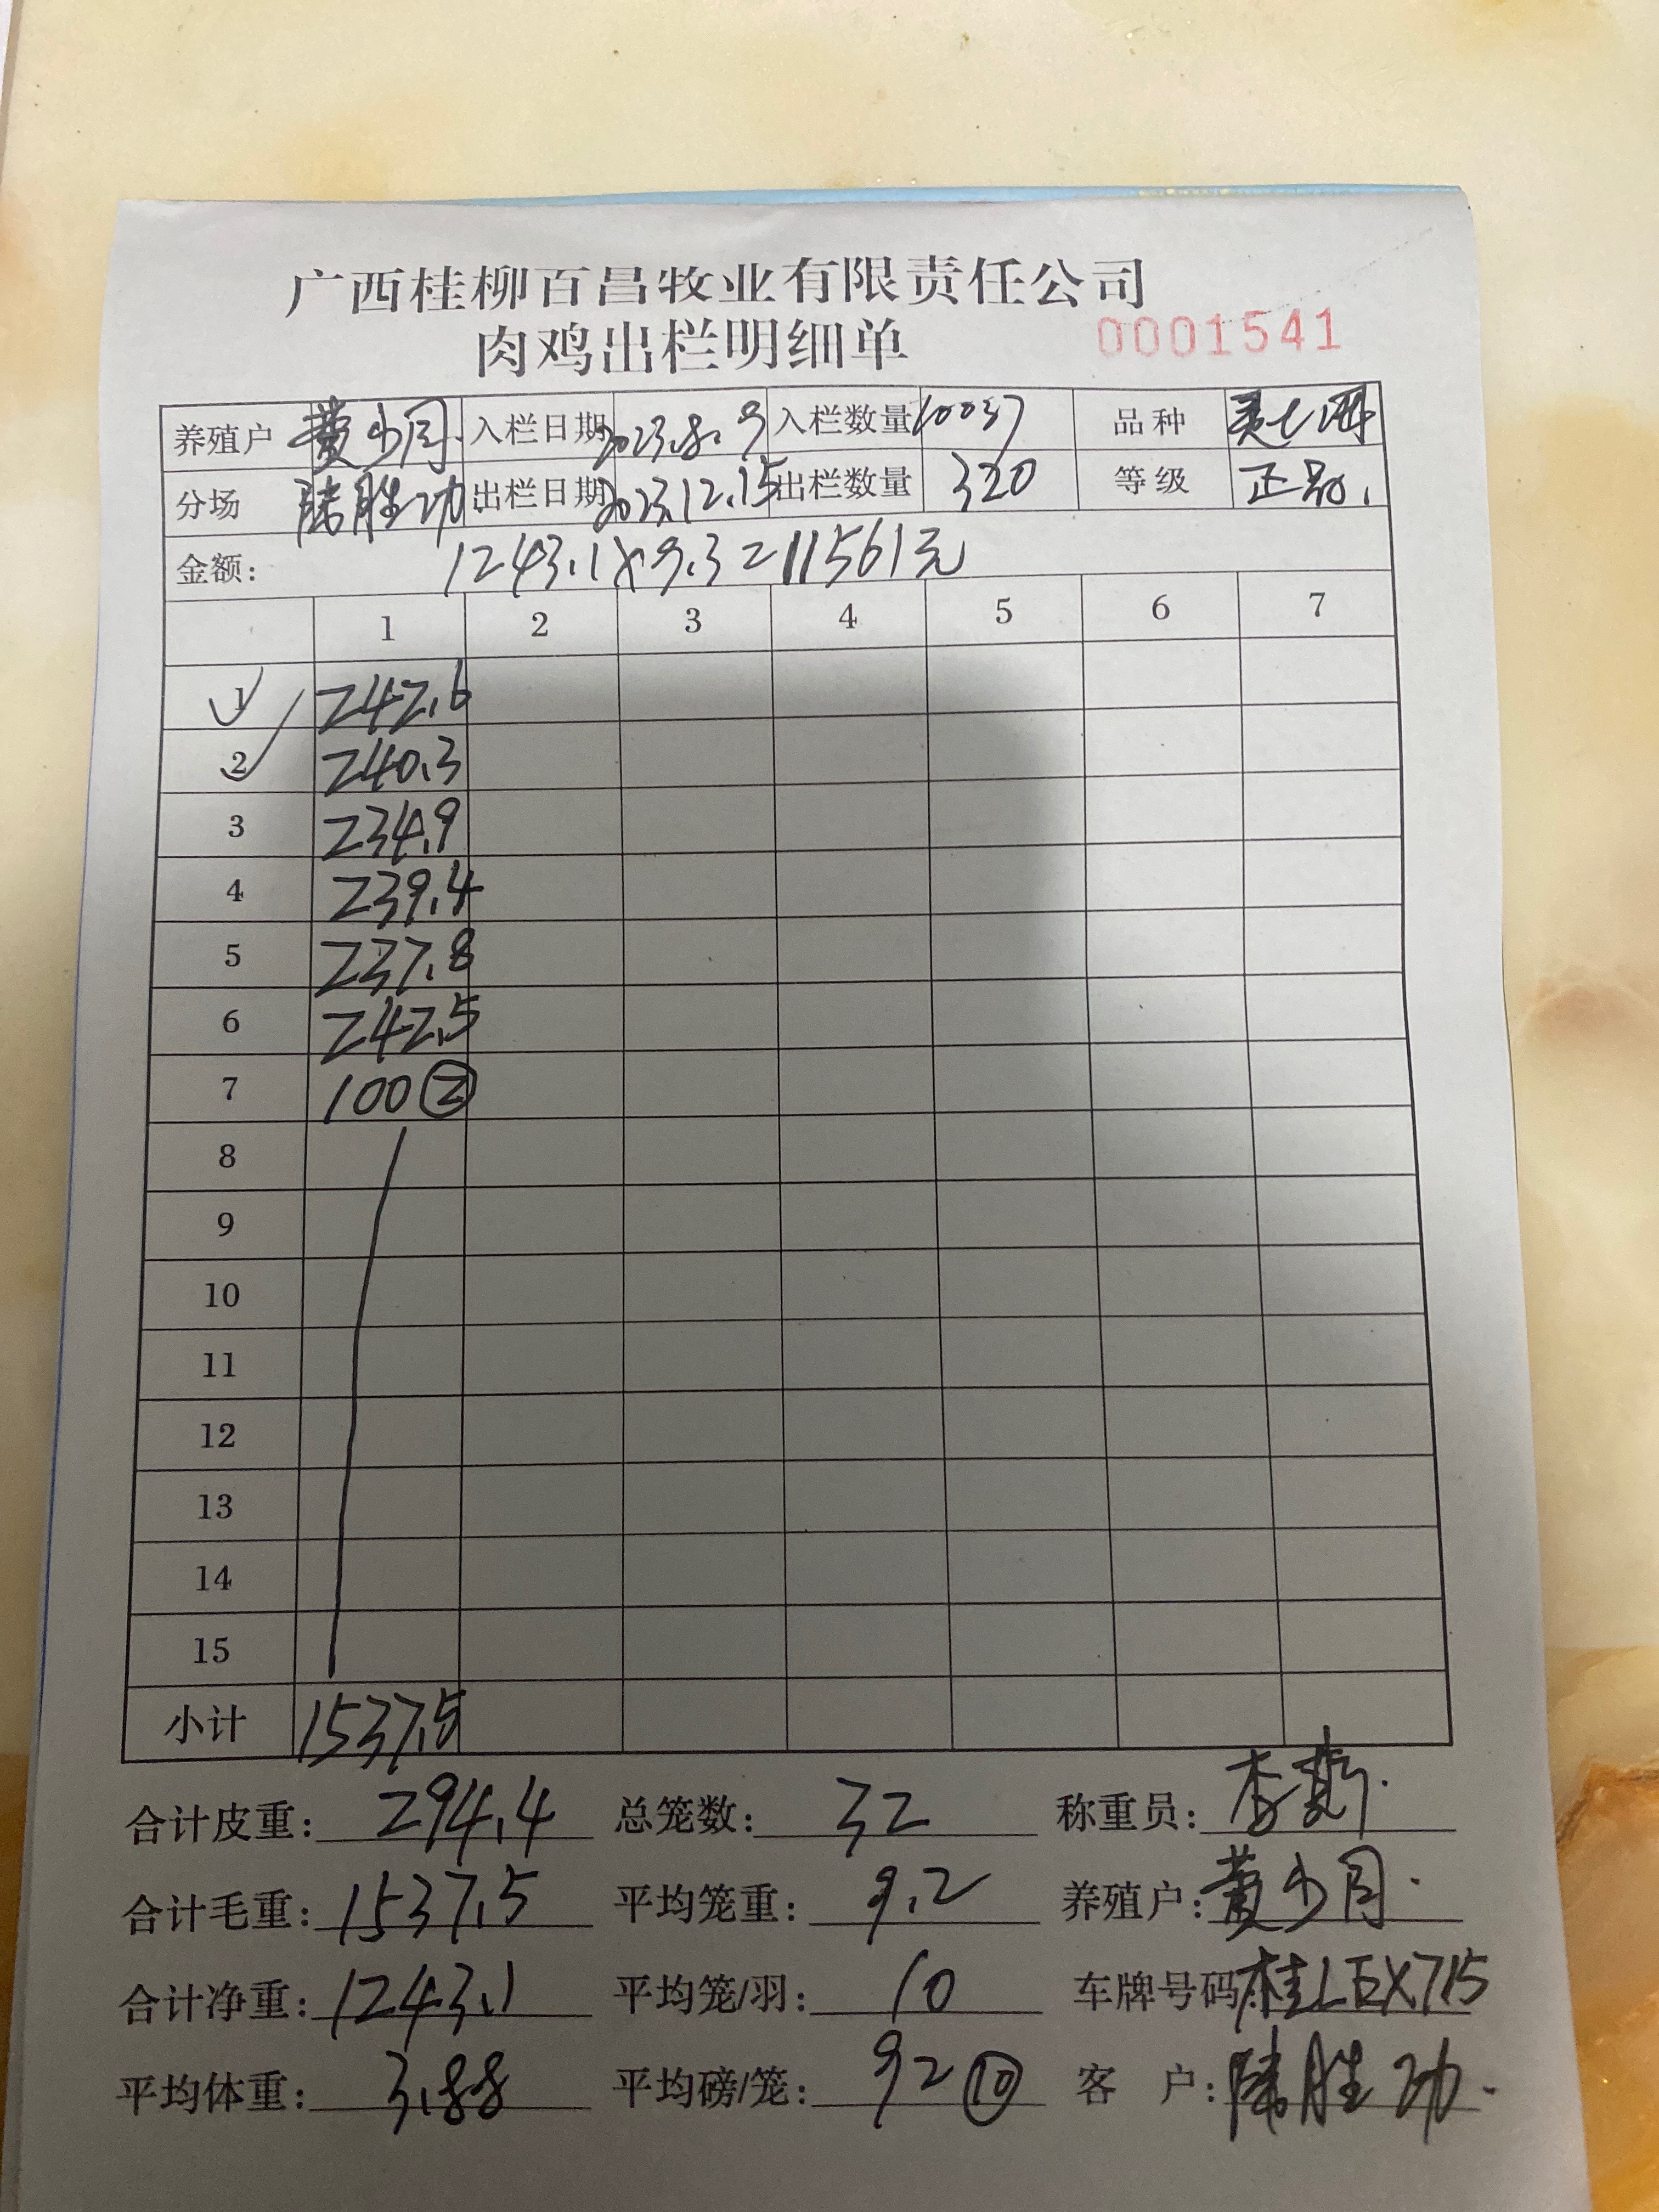 广西桂柳百昌牧业有限责任公司
肉鸡出栏明细单 0001541
养殖户 黄少同 入栏日期 2023.8.9 入栏数量 10037 品种
分场 陆胜功 出栏日期 2023.12.15 出栏数量 320 等级 正品.
金额: 1243.1×9.3=11561元
1 2 3 4 5 6 7
1 242.6
2 240.3
3 234.9
4 239.4
5 237.8
6 242.5
7 100②
8
9
10
11
12
13
14
15
小计 1537.5
合计皮重: 294.4 总笼数: 32 称重员: 李
合计毛重: 1537.5 平均笼重: 9.2 养殖户: 黄少同.
合计净重: 1243.1 平均笼/羽: 10 车牌号码: 桂LEX715
平均体重: 3.88 平均磅/笼: 92⑩ 客户: 陆胜功.